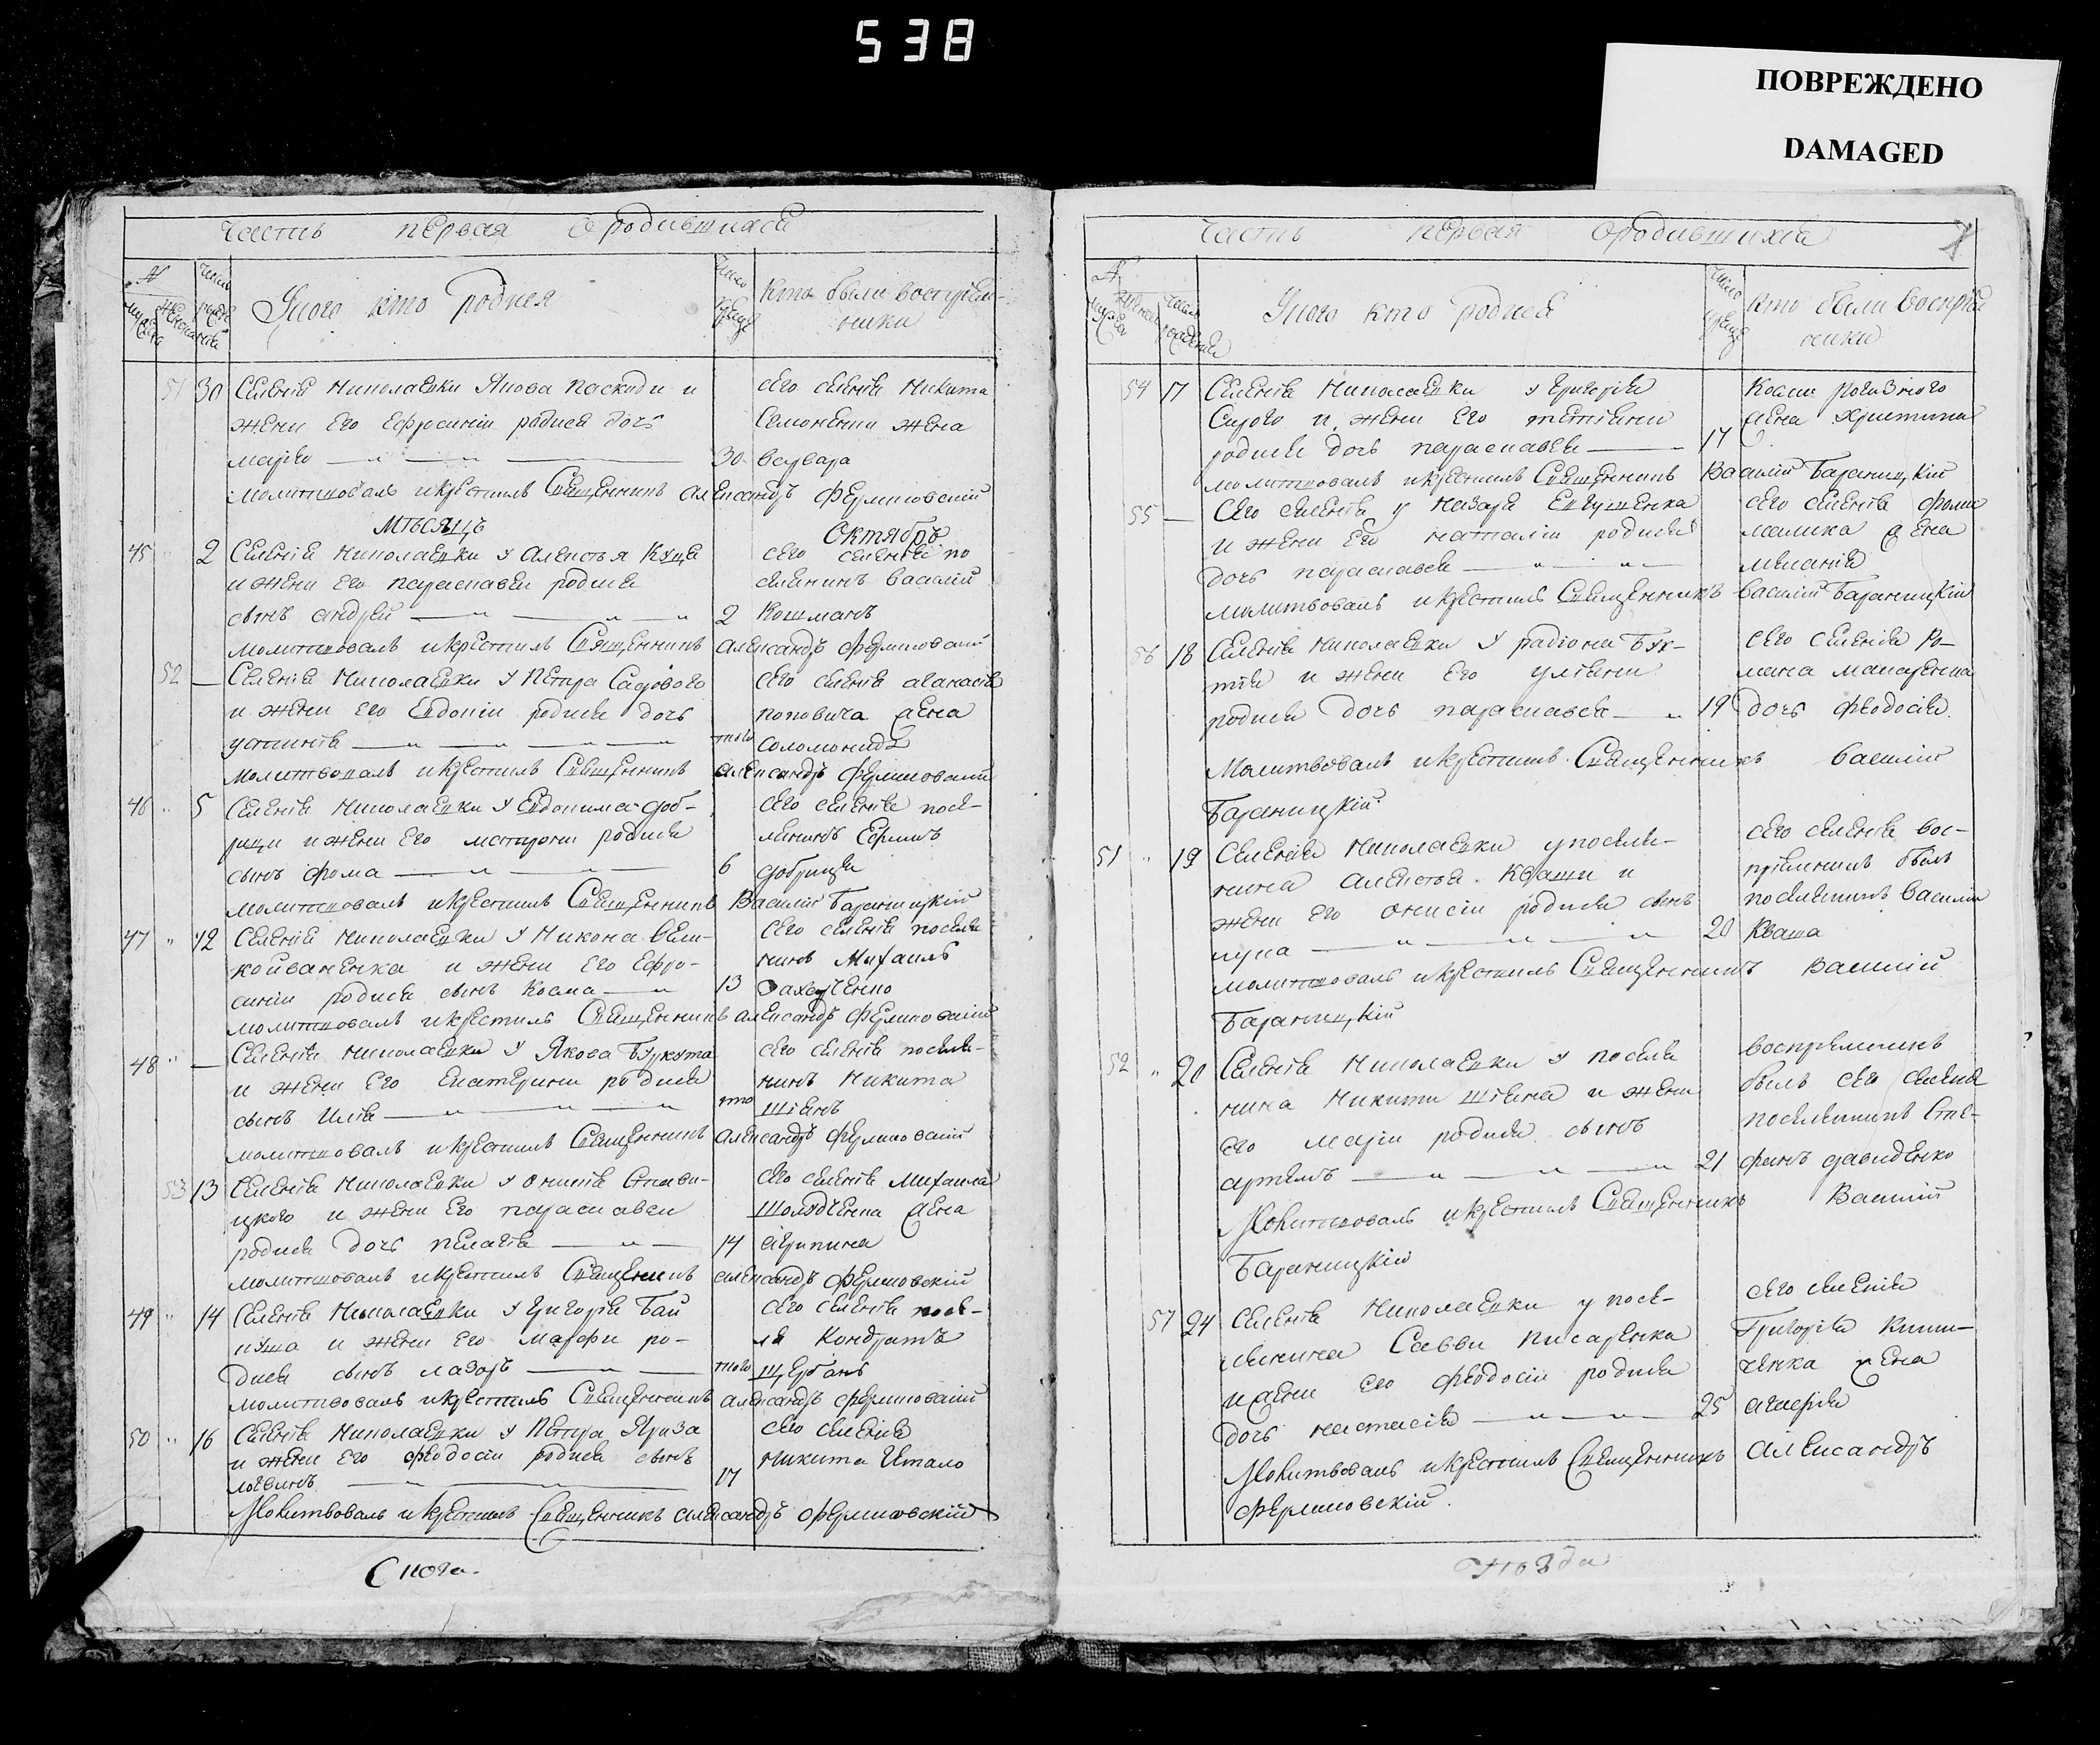 538
ПОВРЕЖДЕНО
DAMAGED
Часть первая Ородившихся
№ Число
Уного кто родился
Кто были восприем-
ники
51 30 Селенія Николаевки Якова Паскиди и
жени Его Ефросиніи родися дочь
марѳа 30
сего селенія Никита
Семоненки жена
варвара
молитвовалъ икрестилъ Священникъ александръ Фермиовскій
Мѣсяцъ Октябръ
45 2 Селенія Николаевки У Алексѣя Куца
и жени Его параскавеи родися
сынъ андрей 2
сего селенія по
селенинъ василій
Кошманъ
молитвовалъ икрестилъ Священникъ александръ Фермиовскій
52 — Селенія Николаевки У Петра Садового
и жени Его Евдокіи родися дочь
устинія того
сего селенія афанасія
поповича жена
соломонида
молитвовалъ икрестилъ Священникъ александръ Фермиовскій
46 5 Селенія Николаевки У Евдокима доб-
рици и жени Его мотрони родися
сынъ фома 6
сего селенія посе-
ленинъ Ефимъ
добрица
молитвовалъ икрестилъ Священникъ Василій Бараницкій
47 12 Селенія Николаевки У Никона Вели-
койваненка и жени Его Ефро-
синіи родися сынъ Косма 13
сего селенія поселе
нинъ Михаилъ
Захарченко
молитвовалъ икрестилъ Священникъ александръ Фермиовскій
48 — Селенія Николаевки У Якова Буркута
и жени Его Екатерини родися
сынъ Илія того
сего селенія поселе-
нинъ Никита
Штанъ
молитвовалъ икрестилъ Священникъ александръ Фермиовскій
53 13 Селенія Николаевки У Онисія Стави-
цкого и жени Его параскавеи
родися дочь пелагія 14
сего селенія Михаила
Шолудченка жена
агрипина
молитвовалъ икрестилъ Священникъ александръ Фермиовскій
49 14 Селенія Николаевки У Григорія Бай
куша и жени Его марфи ро-
дися сынъ лазаръ того
сего селенія посе-
ля Кондратъ
Щербань
молитвовалъ икрестилъ Священникъ александръ Фермиовскій
50 16 Селенія Николаевки У Петра Ярiза
и жени Его феодосіи родися сынъ
логвинъ 17
сего селенія
Никита
Молитвовалъ икрестилъ Священникъ александръ Фермиовскій
Часть первая Ородившихся
№ Число
Уного кто родися
кто были воспріем
ники
54 17 Селенія Николаевки У Григорія
Сирого и жени Его тетіяни
родися дочь параскавея 17
жена христина
молитвовалъ икрестилъ Священникъ Василій Бараницкій
55 — Сего селенія у Назара Евтушенка
и жени Его наталіи родися
дочь параскавея
сего селенія фоми
жена
меланія
молитвовалъ икрестилъ Священникъ василій Бараницкій
56 18 Селенія Николаевки У радіона Бух-
тія и жени Его уліяни
родися дочь параскавея 19
сего селенія Ро-
мана макаренка
дочь феодосія
Молитвовалъ икрестилъ Священникъ василій
Бараницкій
51 19 Селенія Николаевки упоселе-
нина Алексѣя Кваши и
жени Его онисіи родися сынъ
лука 20
сего селенія вос-
пріемникъ былъ
поселенинъ василій
Кваша
молитвовалъ икрестилъ Священникъ Василій
Бараницкій
52 20 Селенія Николаевки У поселе
нина Никити Штана и жени
его маріи родися сынъ
артемъ 21
воспремникъ
былъ сего селения
поселенинъ Сте-
фанъ давиденко
Молитвовалъ икрестилъ Священникъ Василій
Бараницкій
57 24 Селенія Николаевки у посе-
ленина Савви Писаренка
и жени его феодосіи родися
дочь настасія 25
сего селенія
Григорія
жена
Молитвовалъ икрестилъ Священникъ александръ
Фермиовскій